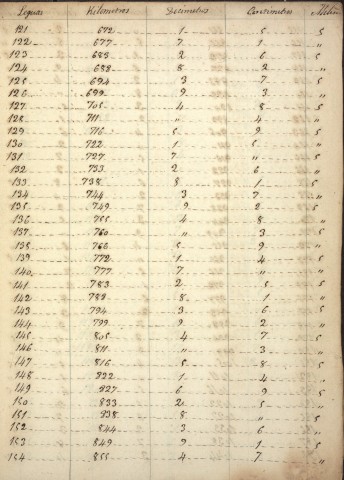 Leguas Kilometros Decimetros Centimetros
121 672 1 5 5
122 677 7 1 "
123 683 2 6 5
124 688 8 2 "
125 694 3 7 5
126 699 9 3 "
127 705 4 8 5
128 711 " 4 "
129 716 5 9 5
130 722 1 5 "
131 727 7 " 5
132 733 2 6 "
133 738 8 1 5
134 744 3 7 "
135 749 9 2 5
136 755 4 8 "
137 760 " 3 5
138 766 5 9 "
139 772 1 4 5
140 777 7 " "
141 783 2 5 5
142 788 8 1 "
143 794 3 6 5
144 799 9 2 "
145 805 4 7 5
146 811 " 3 "
147 816 5 8 5
148 822 1 4 "
149 827 6 9 5
150 833 2 5 "
151 838 8 " 5
152 844 3 6 "
153 849 9 1 5
154 855 4 7 "